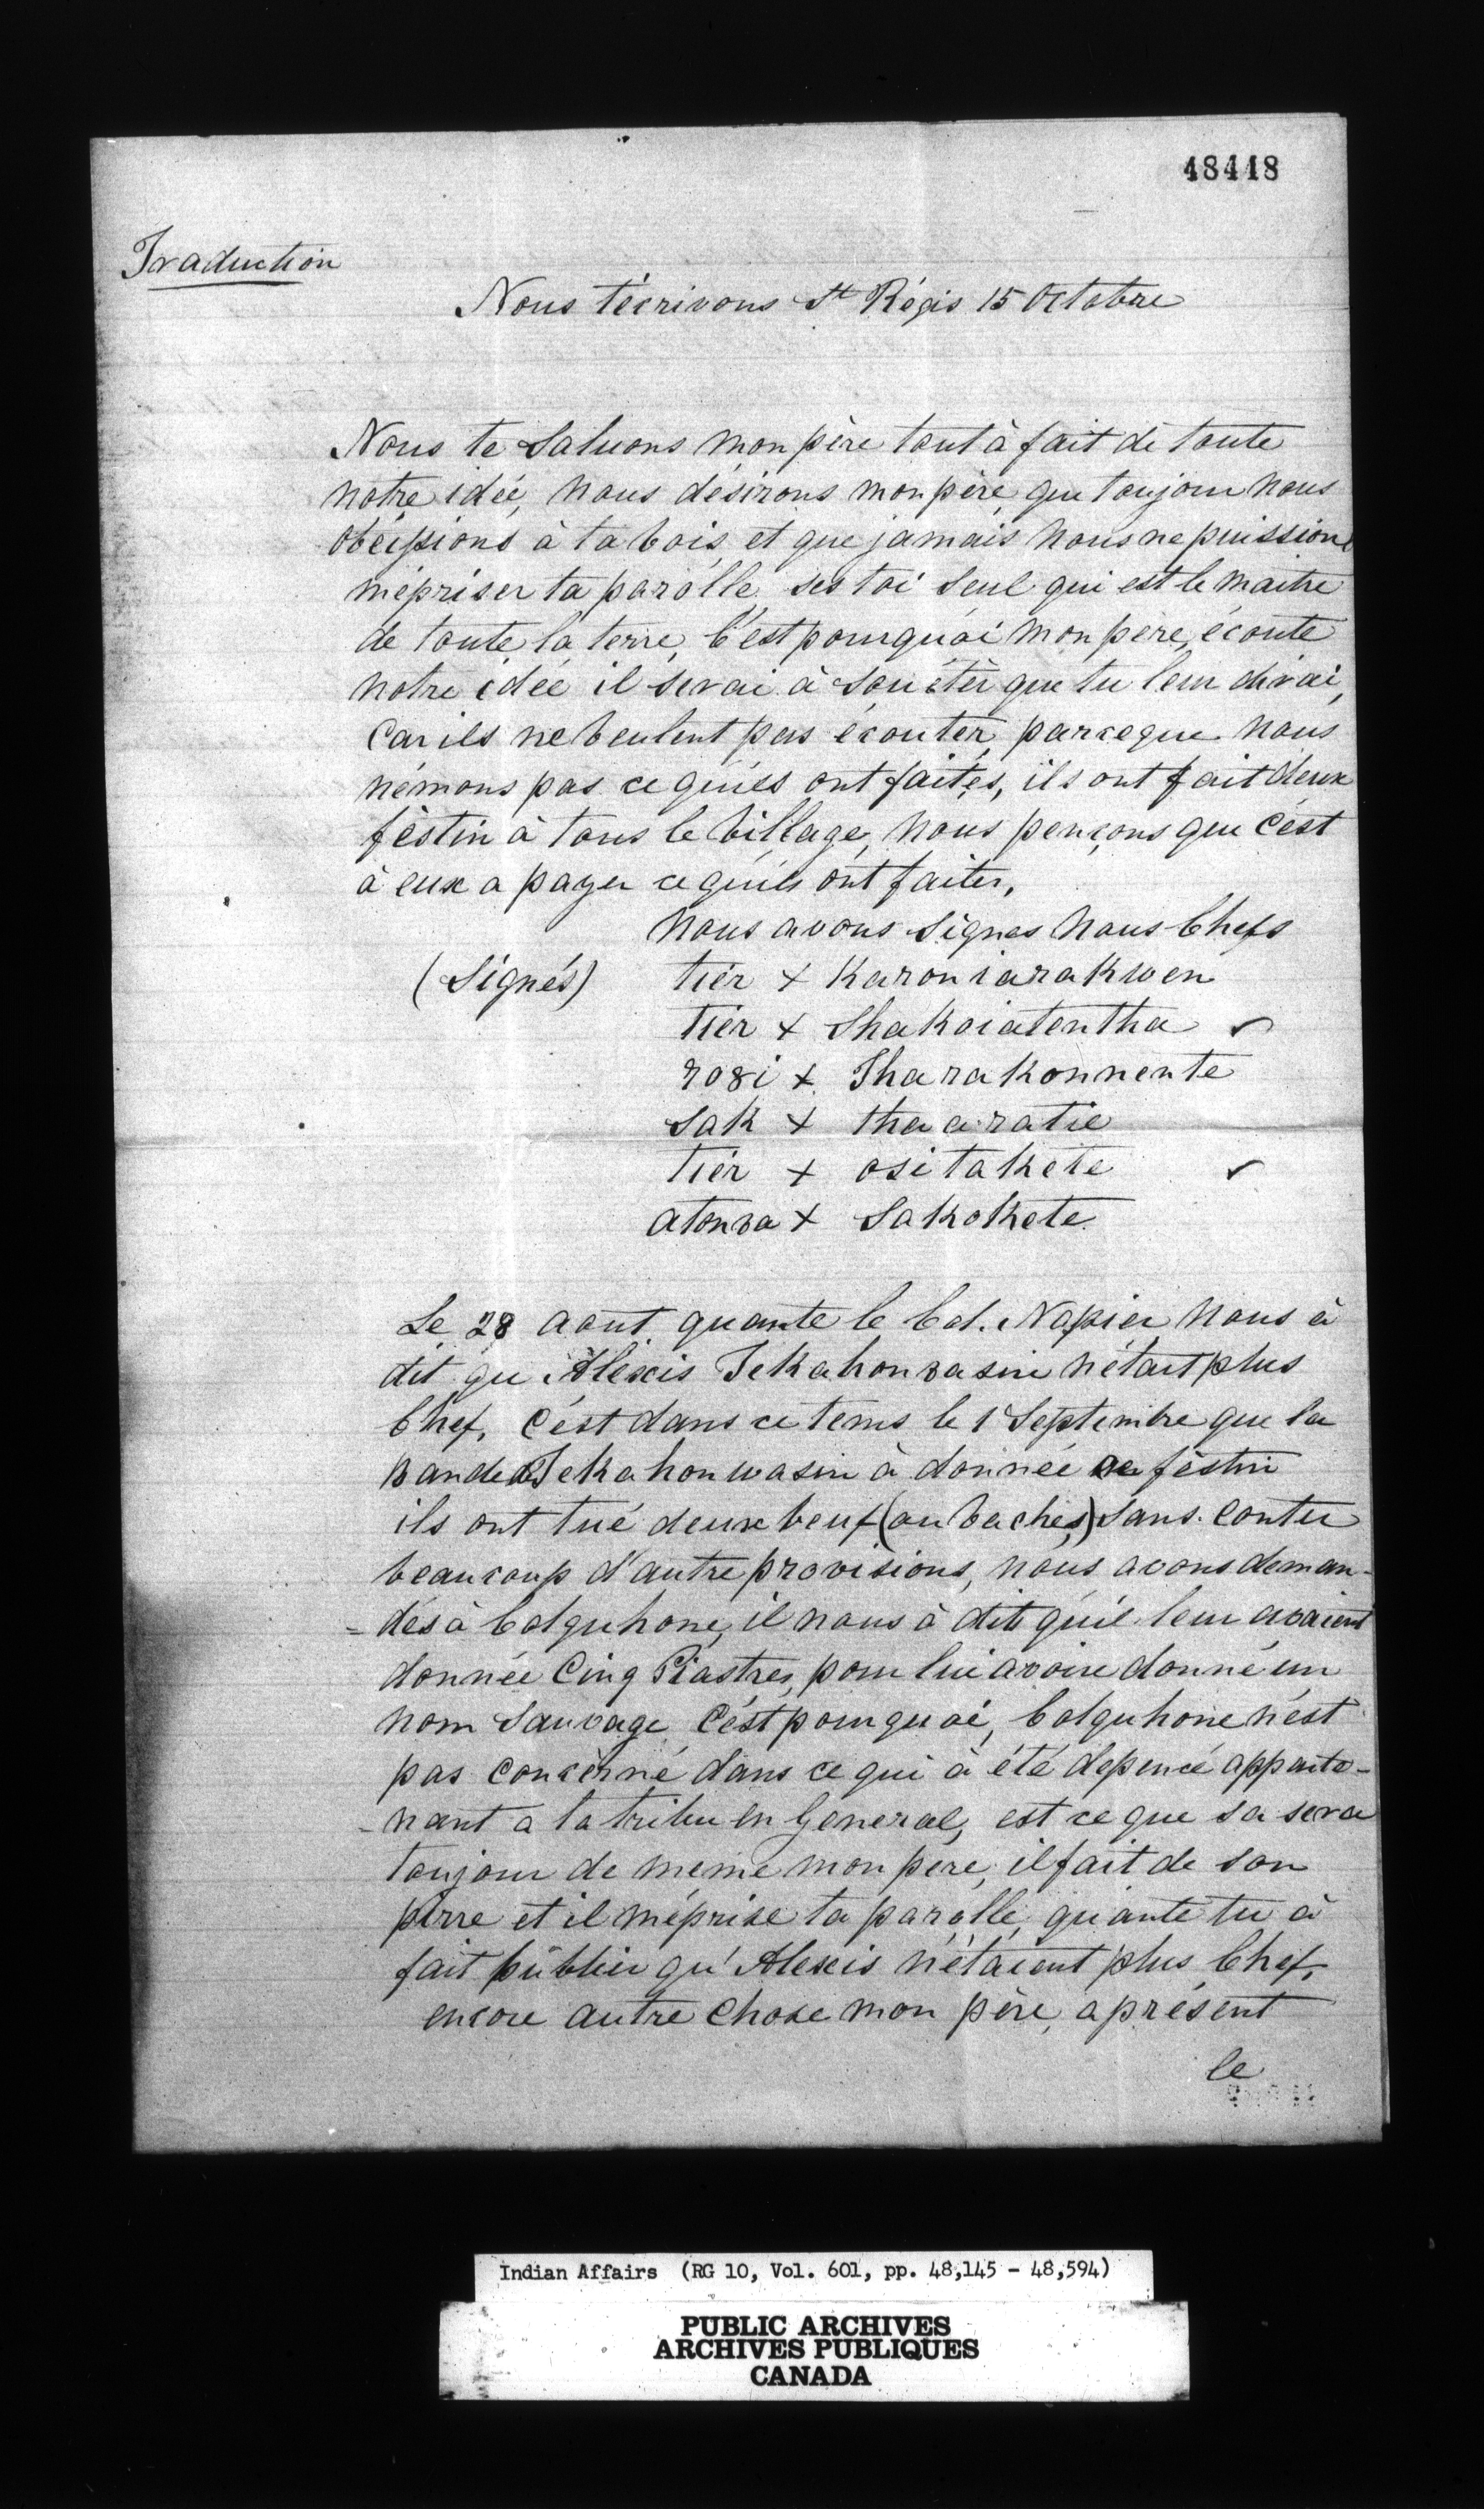 48418
Traduction
Nous t'écrivons St Régis 15 Octobre
Nous te Saluons mon père tout à fait de toute
notre idée, nous désirons mon père, que toujour nous
obéissions à ta vois, et que jamais nous ne puissions
mépriser ta parolle ses toi Seul qui est le maitre
de toute la terre, C'est pourquoi mon père, écoute
notre idée il serai à souéter que tu leur dirai,
Car ils ne veulent pas écouter, parceque nous
némons pas ce qu'ils ont faites, ils ont fait deux
féstin à tous le village, nous pençons que c'ést
à eux a payer ce qu'ils ont faites,
Nous avons Signes Nous Chefs
(Signés) tier + Karoniarakwen
tier + Shakoiatentha ✓
ro8i + Tharakonnente
Sak + thaaratie
tier + ositakete ✓
atonwa + Sakokete
Le 28 aout quante le Col. Napier nous à
dit qu'Alexis Tekahonwasin n'était plus
Chef, C'ést dans ce tems le 1 Septembre que la
Bande Tekahonwasin à donnée féstin
ils ont tué deux beuf (ou vaches) Sans conter
beaucoup d'autre provisions, nous avons deman-
=dés à Colquhone, il nous à dit qu'il leur avaient
donnée Cinq Piastres, pour lui avoire donné un
nom Sauvage C'ést pourquoi, Colquhone n'ést
pas concèrné dans ce qui à été depencé apparte-
-nant a la tribu en General, est ce que sa sera
toujour de meme mon père, il fait de son
pirre et il méprise ta parolle, quante tu à
fait publier qu'Alexis n'étaient plus Chef,
encore autre chose mon père, a présent
le
Indian Affairs (RG 10, Vol. 601, pp. 48,145 - 48,594)
PUBLIC ARCHIVES
ARCHIVES PUBLIQUES
CANADA